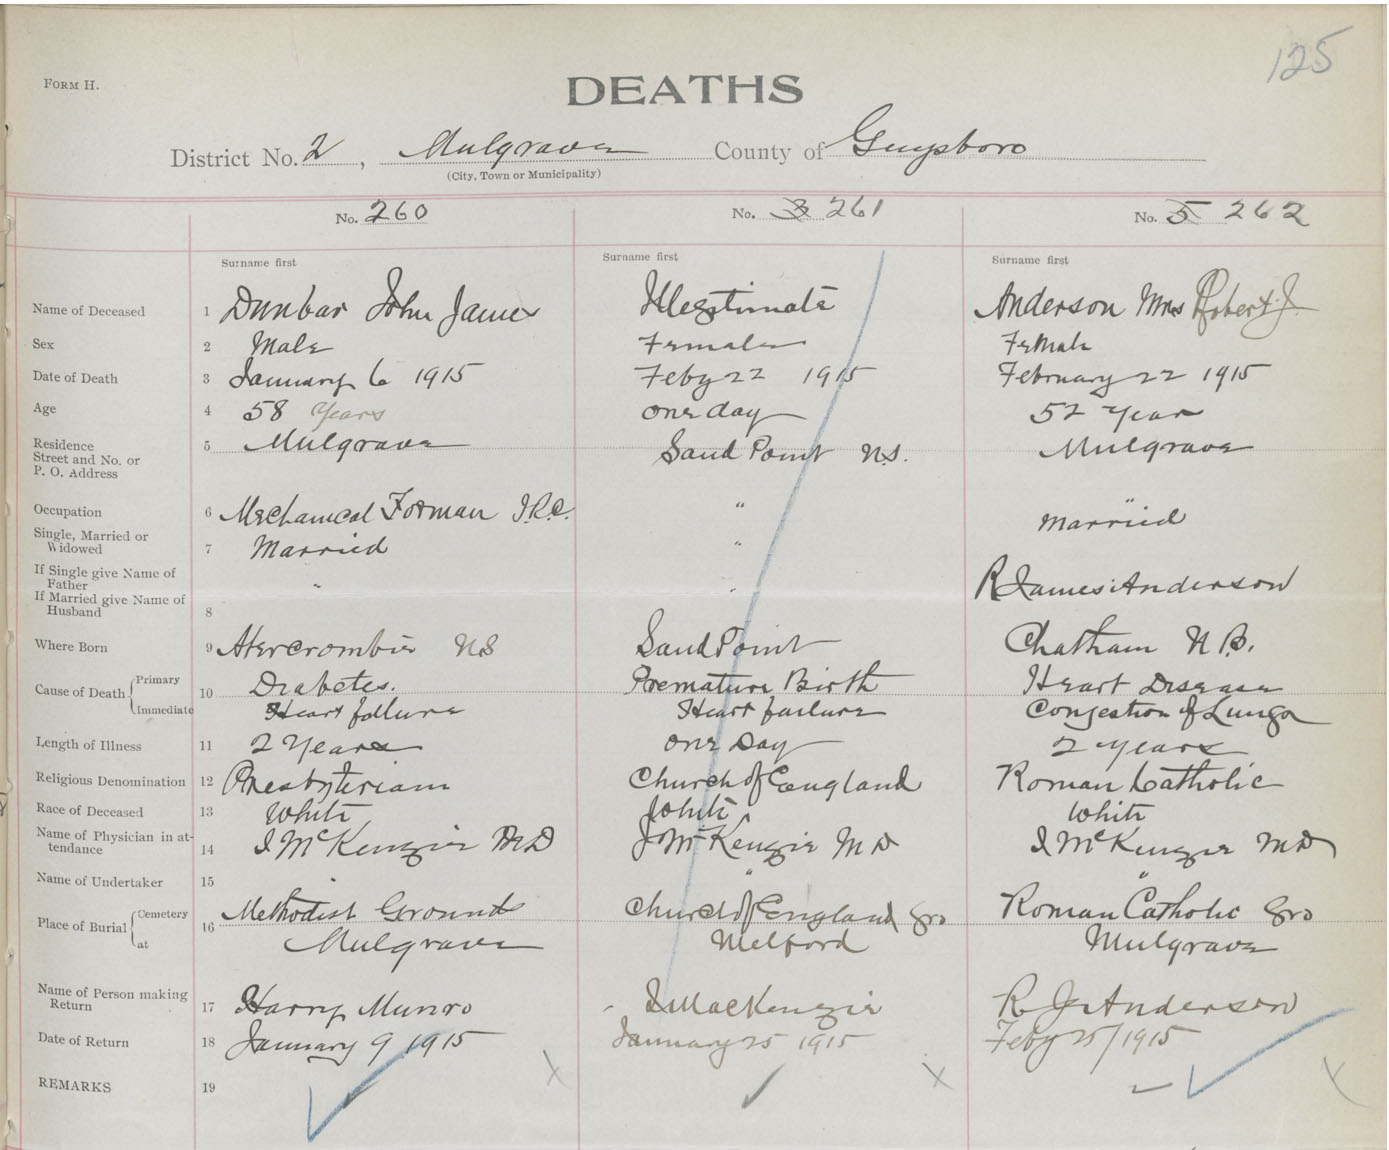 125
FORM H.
DEATHS
District No. 2, Mulgrave County of Guysboro
(City, Town or Municipality)
No. 260 No. 3 261 No. 5 262
Surname first Surname first Surname first
Name of Deceased 1 Dunbar John James Illegitimate Anderson Mrs Robert J.
Sex 2 Male Female Female
Date of Death 3 January 6 1915 Feby 22 1915 February 22 1915
Age 4 58 Years one day 52 Year
Residence Street and No. or P. O. Address 5 Mulgrave Sand Point N.S. Mulgrave
Occupation 6 Mechanical Forman I.R.C. " "
Single, Married or Widowed 7 Married " Married
If Single give Name of Father " "
If Married give Name of Husband 8 R James Anderson
Where Born 9 Abercrombie NS Sand Point Chatham N.B.
Cause of Death Primary 10 Diabetes. Premature Birth Heart Disease
Immediate Heart failure Heart failure Congestion of Lungs
Length of Illness 11 2 Years one Day 2 years
Religious Denomination 12 Presbyterian Church of England Roman Catholic
Race of Deceased 13 White White White
Name of Physician in attendance 14 J McKenzie MD J McKenzie MD J McKenzie MD
Name of Undertaker 15 " "
Place of Burial Cemetery 16 Methodist Grounds Church of England Gro Roman Catholic Gro
at Mulgrave Melford Mulgrave
Name of Person making Return 17 Harry Munro J MacKenzie R J Anderson
Date of Return 18 January 9 1915 January 25 1915 Feby 25/1915
REMARKS 19